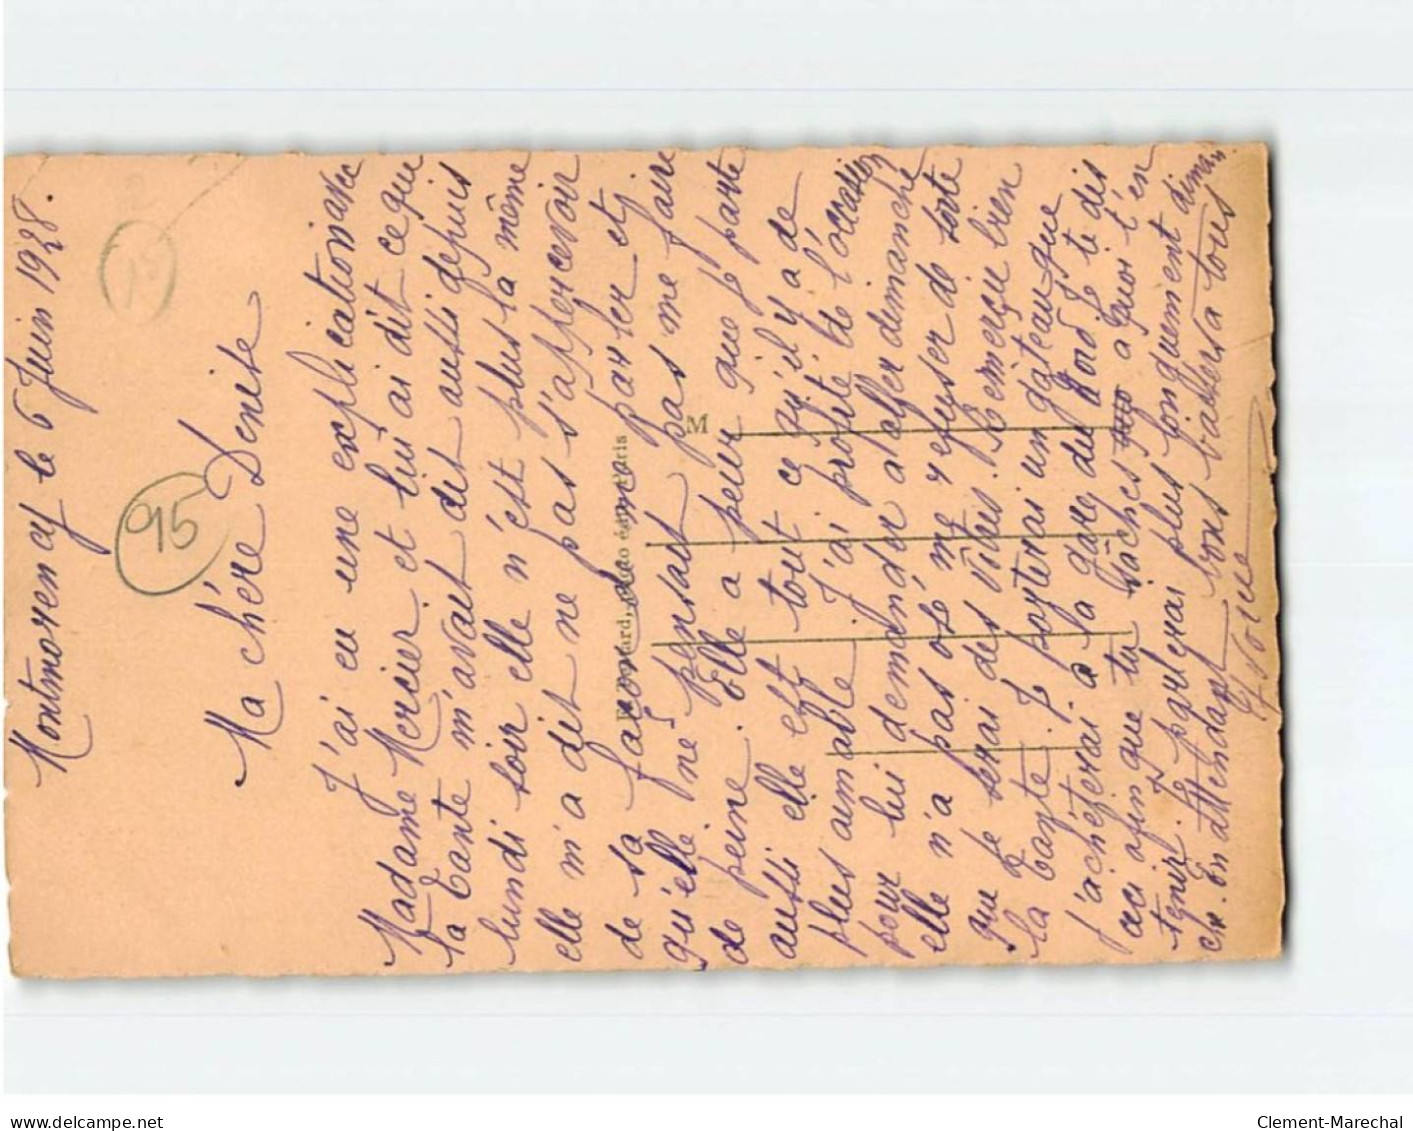 Montmorency le 6 Juin 1928.
95
Ma chère Denise
J'ai eu une explication avec
Madame Mercier et lui ai dit ce que
la Tante m'avait dit aussi depuis
lundi soir elle n'est plus la même
elle m'a dit ne pas s'appercevoir
de sa façon de me parler et
qu'elle ne pensait pas me faire
de peine. Elle a peur que je parte
aussi elle est tout ce qu'il y a de
plus aimable. J'ai profité de l'occasion
pour lui demander a aller dimanche
elle n'a pas osé me refuser de sorte
que je serai des vôtres. Remerçu bien
la Tante. Je porterai un gateau que
j'achéterai à la gare du Nord Je te dis
ceci afin que tu saches a quoi t'en
tenir. Je parlerai plus longuement diman
che. En attendant bons baisers a tous
Yvonne
M
Paris
Clement-Marechal